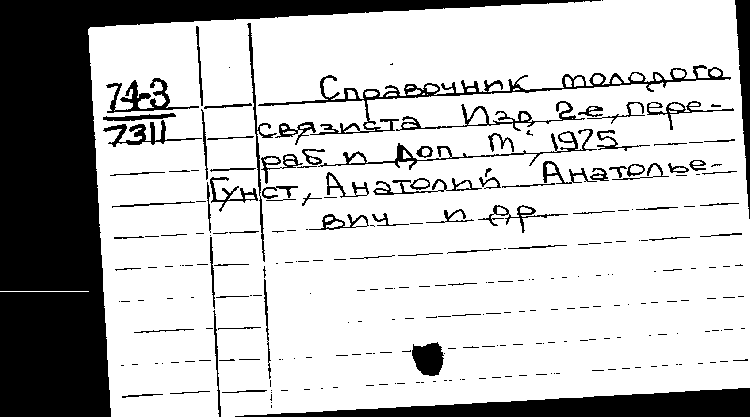 74-3
7311
Справочник молодого
связиста Изд. 2-е, пере-
раб. и доп. М., 1975.
Гунст, Анатолий Анатолье-
вич и др.